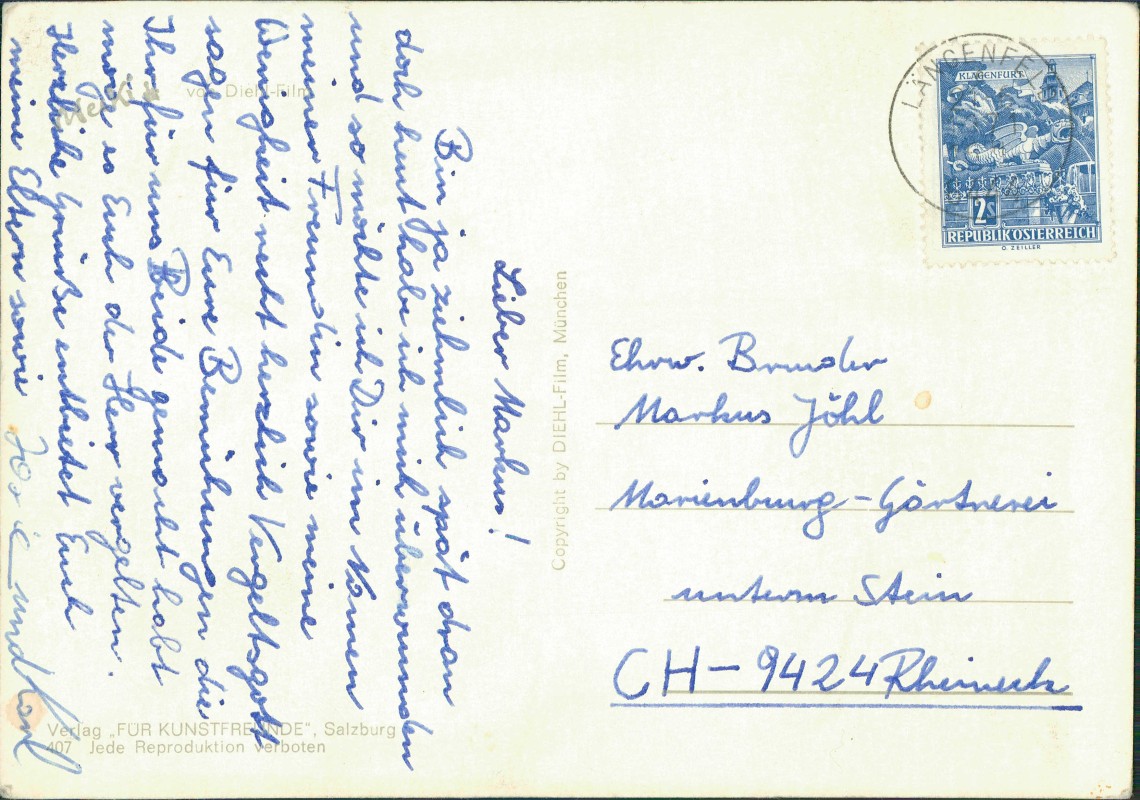 Lieber Markus!
Bin ja ziehmlich spät dran
doch heut habe ich mich überwunden
und so möchte ich Dir im Namen
meiner Freundin sowie meine
Wenigkeit recht herzlich Vergeltsgott
sagen für Eure Bemühungen die
Ihr für uns Beide gemacht habt
möge es Euch der Herr vergelten.
Herzliche Grüße entbietet Euch
meine Eltern sowie
und Karl
von Diehl-Film
Verlag „FÜR KUNSTFREUNDE", Salzburg
407 Jede Reproduktion verboten
Copyright by DIEHL-Film, München
LÄNGENFELD
KLAGENFURT
2s
REPUBLIK ÖSTERREICH
O. ZEILLER
Ehrw. Bruder
Markus Jöhl
Marienburg-Gärtnerei
unterm Stein
CH-9424 Rheineck